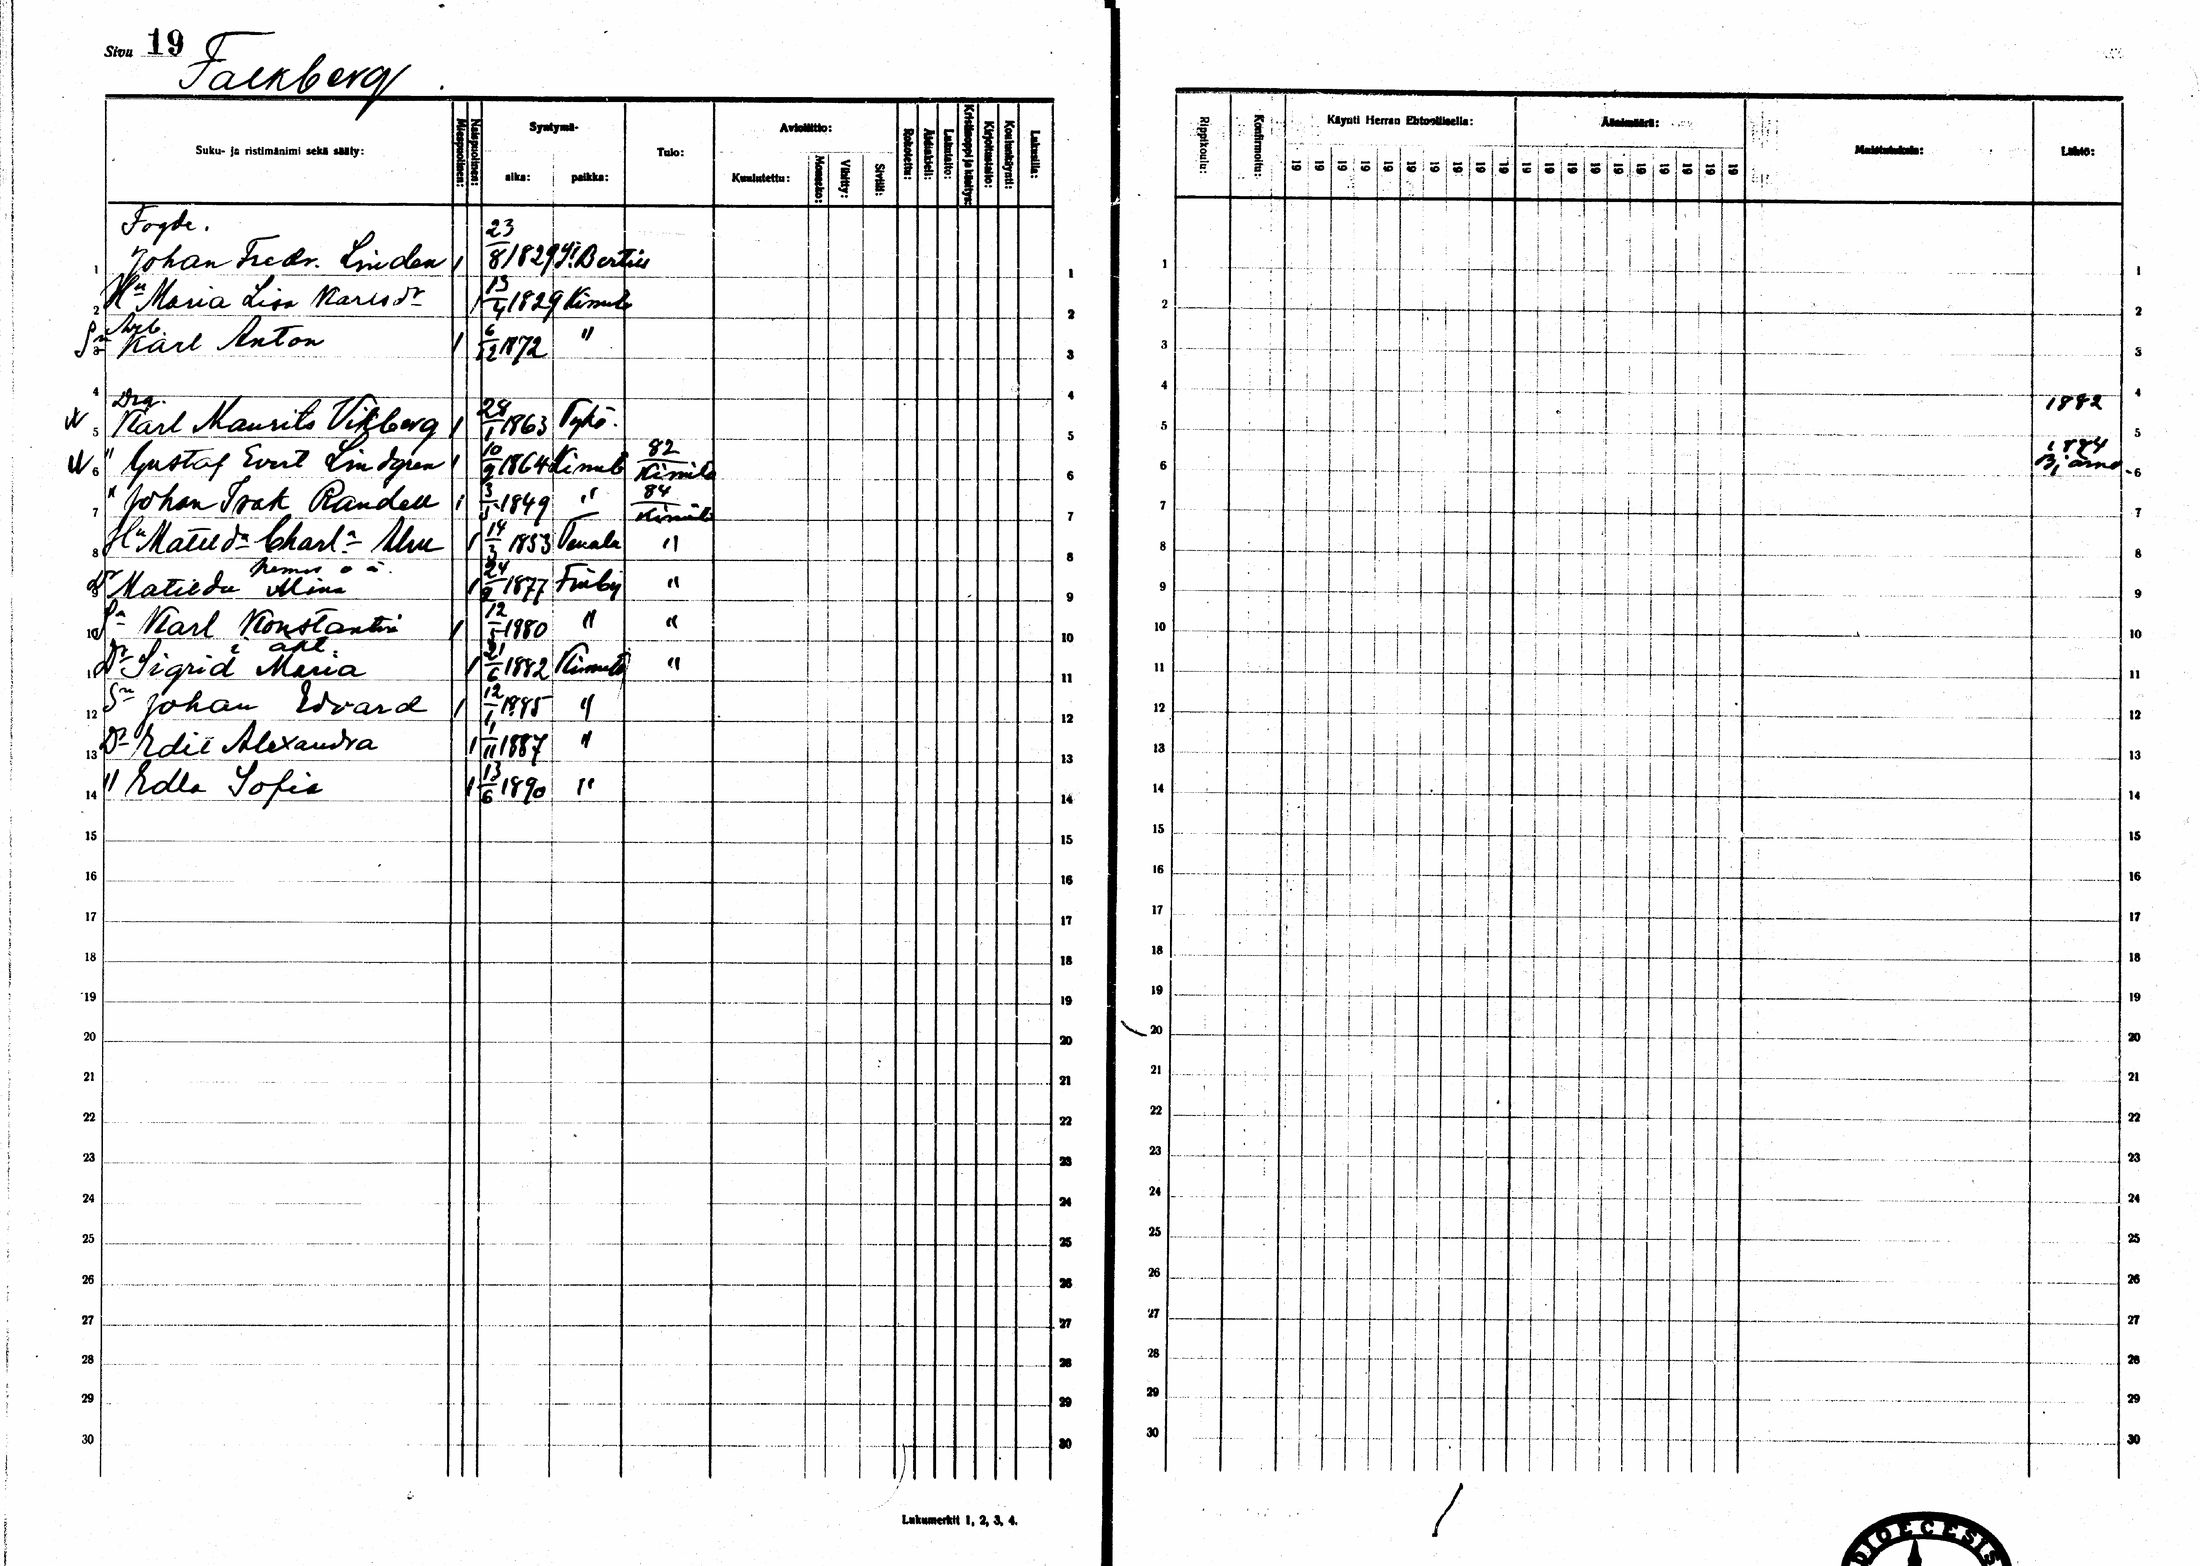 Sivu 19
Falkberg
Suku- ja ristimänimi sekä sääty:
Miespuolinen:
Naispuolinen:
Syntymä-
aika:
paikka:
Tulo:
Avioliitto:
Kuulutettu:
Monesko:
Vihitty:
Siviili:
Rokotettu:
Äidinkieli:
Lukutaito:
Kristinoppi ja käsitys:
Kirjoitustaito:
Koulunkäynti:
Lukusilla:
Rippikoulu:
Konfirmoitu:
Käynti Herran Ehtoollisella:
19 19 19 19 19 19 19 19 19 19
19 19 19 19 19 19 19 19 19 19
Muistutuksia:
Lähtö:
Fogde.
1 Johan Fredr. Linden 1 23/8 1829 St Bertils 1
2 Hu Maria Lisa Karlsdr 1 13/4 1829 Kimito 2
Arb
3 Sn Karl Anton 1 6/12 1872 " 3
4 4 1882
Drg.
5 Karl Maurits Vikberg 1 28/1 1863 Tykö. 5
6 " Gustaf Evert Lindgren 1 10/9 1864 Kimito 82/Kimito 6 1884 Bjärno
7 " Johan Isak Randell 1 3/5 1849 " 84/Kimito 7
8 Hu Matilda Charla 1 14/3 1853 Tenala " 8
9 Dr Matilda Alina 1 24/9 1877 Finby " 9
10 Sn Karl Konstantin 1 12/5 1980 " " 10
11 Dr Sigrid Maria 1 21/6 1882 Kimito " 11
12 Sn Johan Edvard 1 12/1 1885 " 12
13 Dr Edit Alexandra 1 1/11 1887 " 13
14 " Edla Sofia 1 13/6 1890 " 14
15 15
16 16
17 17
18 18
19 19
20 20
21 21
22 22
23 23
24 24
25 25
26 26
27 27
28 28
29 29
30 30
Lukumerkit 1, 2, 3, 4.
DIOECESIS